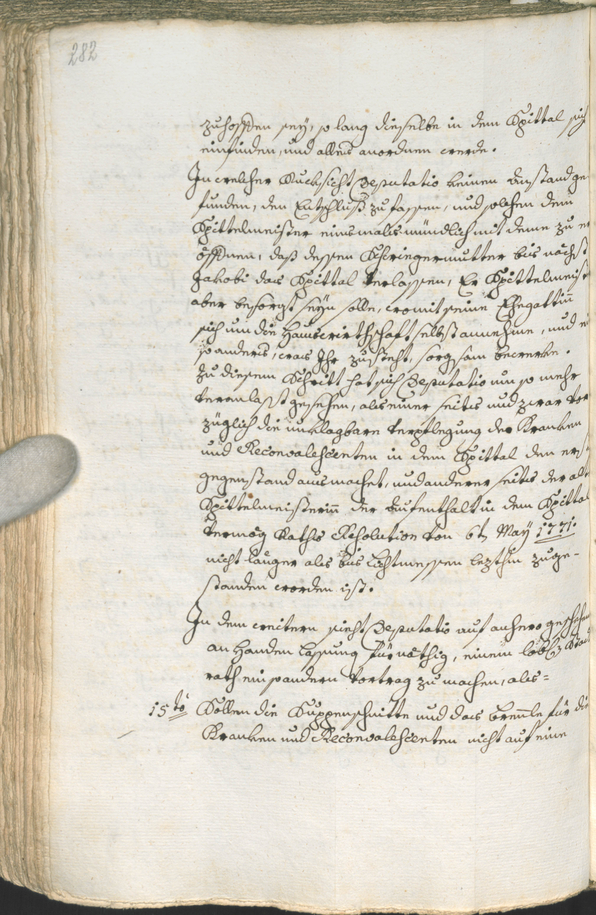 282
zuhoffen sey, so lang dieselbe in dem Spittal sich
einfinden, und alles anordnen werde.
In welcher Rucksicht Deputatio keinen Anstand ge
funden, den Entschluß zu fassen, und solchen dem
Spittelmeister einsmalls mündlich mit deme zu er
öffnen, daß dessen Schwiegermutter bis nächst
Jakobi das Spittal verlassen, Er Spittelmeister
aber besorgt seyn solle, womit seine Ehegattin
sich um die Hauswirthschaft selbst annehme, und
so anders, was Ihr zusteht, sorgsam bewerke.
Zu diesem Schritt hat sich Deputatio um so mehr
veranlasst gesehen, als einer seits und zwar vor
züglich die unklagbare Verpflegung der Kranken
und Reconvalescenten in dem Spittal den ersten
gegenstand ausmachet, und anderer seits der alten
Spittelmeisterin der Aufenthalt in dem Spittal
vermög Raths Resolution von 6t May 1771.
nicht länger als bis Lichtmessen lezthin zuge-
standen worden ist.
In dem weitern sieht Deputatio auf anhero
an Handen lassung für nöthig, einem löbl. Stadt
rath ein so andern Vortrag zu machen, als=
15to Sollen die Suppenschnitte und das Brennle für die
Kranken und Reconvalescenten nicht auf eine